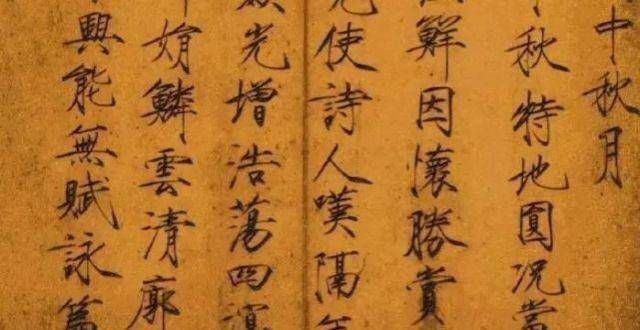 中秋月
秋特地圓況當
鮮因懷勝賞
免使詩人嘆隔年
光增浩蕩四溟
娟鱗雲清廓
興能無賦詠篇